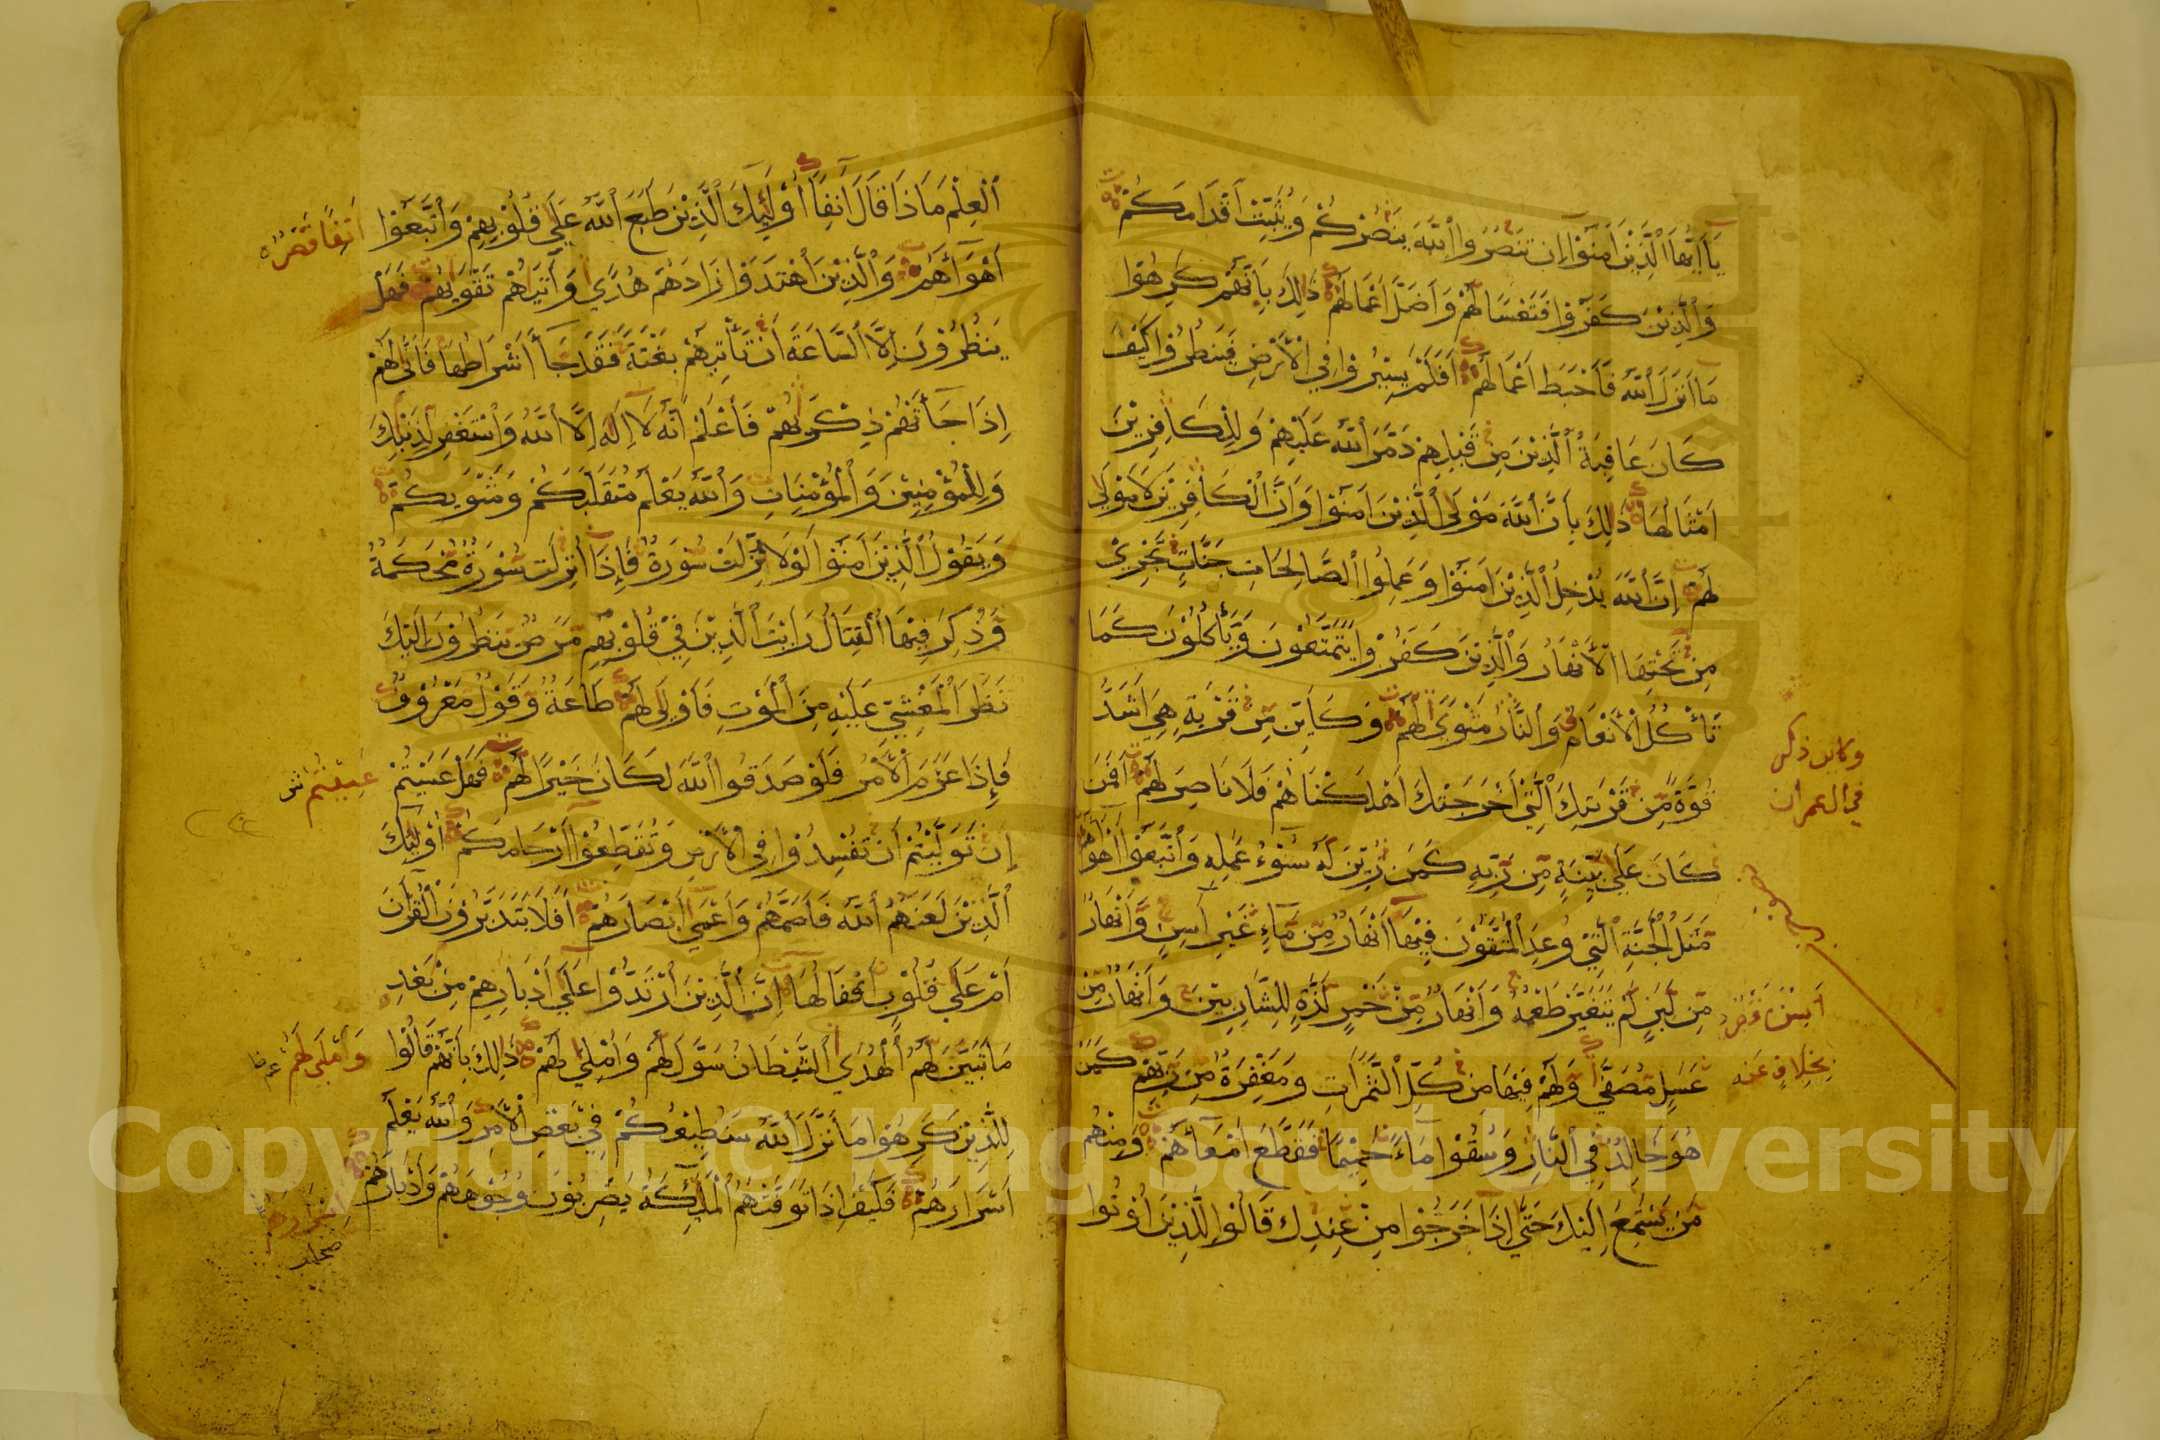 يَا أَيُّهَا الَّذِيْنَ اٰمَنُوْا اِن تَنصُرُوا اللّٰهَ يَنصُرْكُمْ وَيُثَبِّتْ اَقْدَامَكُمْ
وَالَّذِيْنَ كَفَرُوْا فَتَعْسًا لَّهُمْ وَاَضَلَّ اَعْمَالَهُمْ ذٰلِكَ بِاَنَّهُمْ كَرِهُوْا
مَا اَنزَلَ اللّٰهُ فَاَحْبَطَ اَعْمَالَهُمْ اَفَلَمْ يَسِيْرُوْا فِي الْاَرْضِ فَيَنظُرُوْا كَيْفَ
كَانَ عَاقِبَةُ الَّذِيْنَ مِنْ قَبْلِهِمْ دَمَّرَ اللّٰهُ عَلَيْهِمْ وَلِلْكَافِرِيْنَ
اَمْثَالُهَا ذٰلِكَ بِاَنَّ اللّٰهَ مَوْلَى الَّذِيْنَ اٰمَنُوْا وَاَنَّ الْكَافِرِيْنَ لَا مَوْلٰى
لَهُمْ اِنَّ اللّٰهَ يُدْخِلُ الَّذِيْنَ اٰمَنُوْا وَعَمِلُوا الصَّالِحَاتِ جَنَّاتٍ تَجْرِيْ
مِنْ تَحْتِهَا الْاَنْهَارُ وَالَّذِيْنَ كَفَرُوْا يَتَمَتَّعُوْنَ وَيَأْكُلُوْنَ كَمَا
تَأْكُلُ الْاَنْعَامُ وَالنَّارُ مَثْوًى لَّهُمْ وَكَاَيِّنْ مِّنْ قَرْيَةٍ هِيَ اَشَدُّ
قُوَّةً مِّنْ قَرْيَتِكَ الَّتِيْ اَخْرَجَتْكَ اَهْلَكْنَاهُمْ فَلَا نَاصِرَ لَهُمْ اَفَمَنْ
كَانَ عَلٰى بَيِّنَةٍ مِّنْ رَّبِّهِ كَمَنْ زُيِّنَ لَهُ سُوْءُ عَمَلِهِ وَاتَّبَعُوْا اَهْوَآءَهُمْ
مَثَلُ الْجَنَّةِ الَّتِيْ وُعِدَ الْمُتَّقُوْنَ فِيْهَا اَنْهَارٌ مِّنْ مَّآءٍ غَيْرِ اٰسِنٍ وَّاَنْهَارٌ
مِّنْ لَّبَنٍ لَّمْ يَتَغَيَّرْ طَعْمُهُ وَاَنْهَارٌ مِّنْ خَمْرٍ لَّذَّةٍ لِّلشَّارِبِيْنَ وَاَنْهَارٌ مِّنْ
عَسَلٍ مُّصَفًّى وَلَهُمْ فِيْهَا مِنْ كُلِّ الثَّمَرَاتِ وَمَغْفِرَةٌ مِّنْ رَّبِّهِمْ كَمَنْ
هُوَ خَالِدٌ فِي النَّارِ وَسُقُوْا مَآءً حَمِيْمًا فَقَطَّعَ اَمْعَآءَهُمْ وَمِنْهُمْ
مَّنْ يَّسْتَمِعُ اِلَيْكَ حَتّٰى اِذَا خَرَجُوْا مِنْ عِنْدِكَ قَالُوْا لِلَّذِيْنَ اُوْتُوا
وكاين ذكر
في ال عمران
بخلاف عنه
الْعِلْمَ مَاذَا قَالَ اٰنِفًا اُوْلٰٓئِكَ الَّذِيْنَ طَبَعَ اللّٰهُ عَلٰى قُلُوْبِهِمْ وَاتَّبَعُوْا
اَهْوَآءَهُمْ وَالَّذِيْنَ اهْتَدَوْا زَادَهُمْ هُدًى وَاٰتٰىهُمْ تَقْوٰىهُمْ فَهَلْ
يَنْظُرُوْنَ اِلَّا السَّاعَةَ اَنْ تَأْتِيَهُمْ بَغْتَةً فَقَدْ جَآءَ اَشْرَاطُهَا فَاَنّٰى لَهُمْ
اِذَا جَآءَتْهُمْ ذِكْرٰىهُمْ فَاعْلَمْ اَنَّهُ لَا اِلٰهَ اِلَّا اللّٰهُ وَاسْتَغْفِرْ لِذَنْبِكَ
وَلِلْمُؤْمِنِيْنَ وَالْمُؤْمِنَاتِ وَاللّٰهُ يَعْلَمُ مُتَقَلَّبَكُمْ وَمَثْوٰىكُمْ
وَيَقُوْلُ الَّذِيْنَ اٰمَنُوْا لَوْلَا نُزِّلَتْ سُوْرَةٌ فَاِذَا اُنْزِلَتْ سُوْرَةٌ مُّحْكَمَةٌ
وَّذُكِرَ فِيْهَا الْقِتَالُ رَاَيْتَ الَّذِيْنَ فِيْ قُلُوْبِهِمْ مَّرَضٌ يَنْظُرُوْنَ اِلَيْكَ
نَظَرَ الْمَغْشِيِّ عَلَيْهِ مِنَ الْمَوْتِ فَاَوْلٰى لَهُمْ طَاعَةٌ وَّقَوْلٌ مَّعْرُوْفٌ
فَاِذَا عَزَمَ الْاَمْرُ فَلَوْ صَدَقُوا اللّٰهَ لَكَانَ خَيْرًا لَّهُمْ فَهَلْ عَسَيْتُمْ
اِنْ تَوَلَّيْتُمْ اَنْ تُفْسِدُوْا فِي الْاَرْضِ وَتُقَطِّعُوْا اَرْحَامَكُمْ اُوْلٰٓئِكَ
الَّذِيْنَ لَعَنَهُمُ اللّٰهُ فَاَصَمَّهُمْ وَاَعْمٰى اَبْصَارَهُمْ اَفَلَا يَتَدَبَّرُوْنَ الْقُرْاٰنَ
اَمْ عَلٰى قُلُوْبٍ اَقْفَالُهَا اِنَّ الَّذِيْنَ ارْتَدُّوْا عَلٰى اَدْبَارِهِمْ مِنْ بَعْدِ
مَا تَبَيَّنَ لَهُمُ الْهُدَى الشَّيْطَانُ سَوَّلَ لَهُمْ وَاَمْلٰى لَهُمْ ذٰلِكَ بِاَنَّهُمْ قَالُوْا
لِلَّذِيْنَ كَرِهُوْا مَا نَزَّلَ اللّٰهُ سَنُطِيْعُكُمْ فِيْ بَعْضِ الْاَمْرِ وَاللّٰهُ يَعْلَمُ
اَسْرَارَهُمْ فَكَيْفَ اِذَا تَوَفَّتْهُمُ الْمَلٰٓئِكَةُ يَضْرِبُوْنَ وُجُوْهَهُمْ وَاَدْبَارَهُمْ
عَسِيْتُمْ
وَاُمْلِيَ لَهُمْ
Copyright © King Saud University